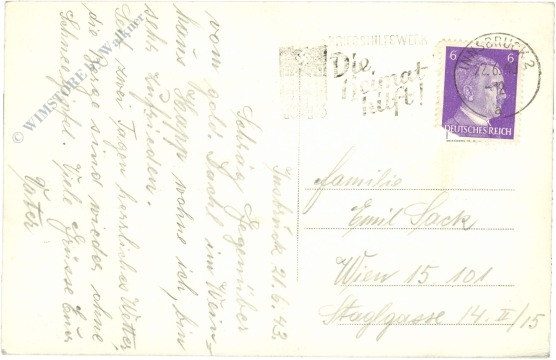 Innsbruck 21.6.43.
Schräg gegenüber
vom gold. Dachl im Wein-
haus Happ wohne ich, bin
sehr zufrieden.
Seit zwei Tagen herrliches Wetter,
die Berge sind wieder ohne
Schnee. Viele Grüsse Euer
Vater
© WIMSTORE P. Walkner
KRIEGSHILFSWERK
Die
Heimat
hilft!
INNSBRUCK 2
6 6
DEUTSCHES REICH
Familie
Emil Sack
Wien 15 101
Staglgasse 14. II/15